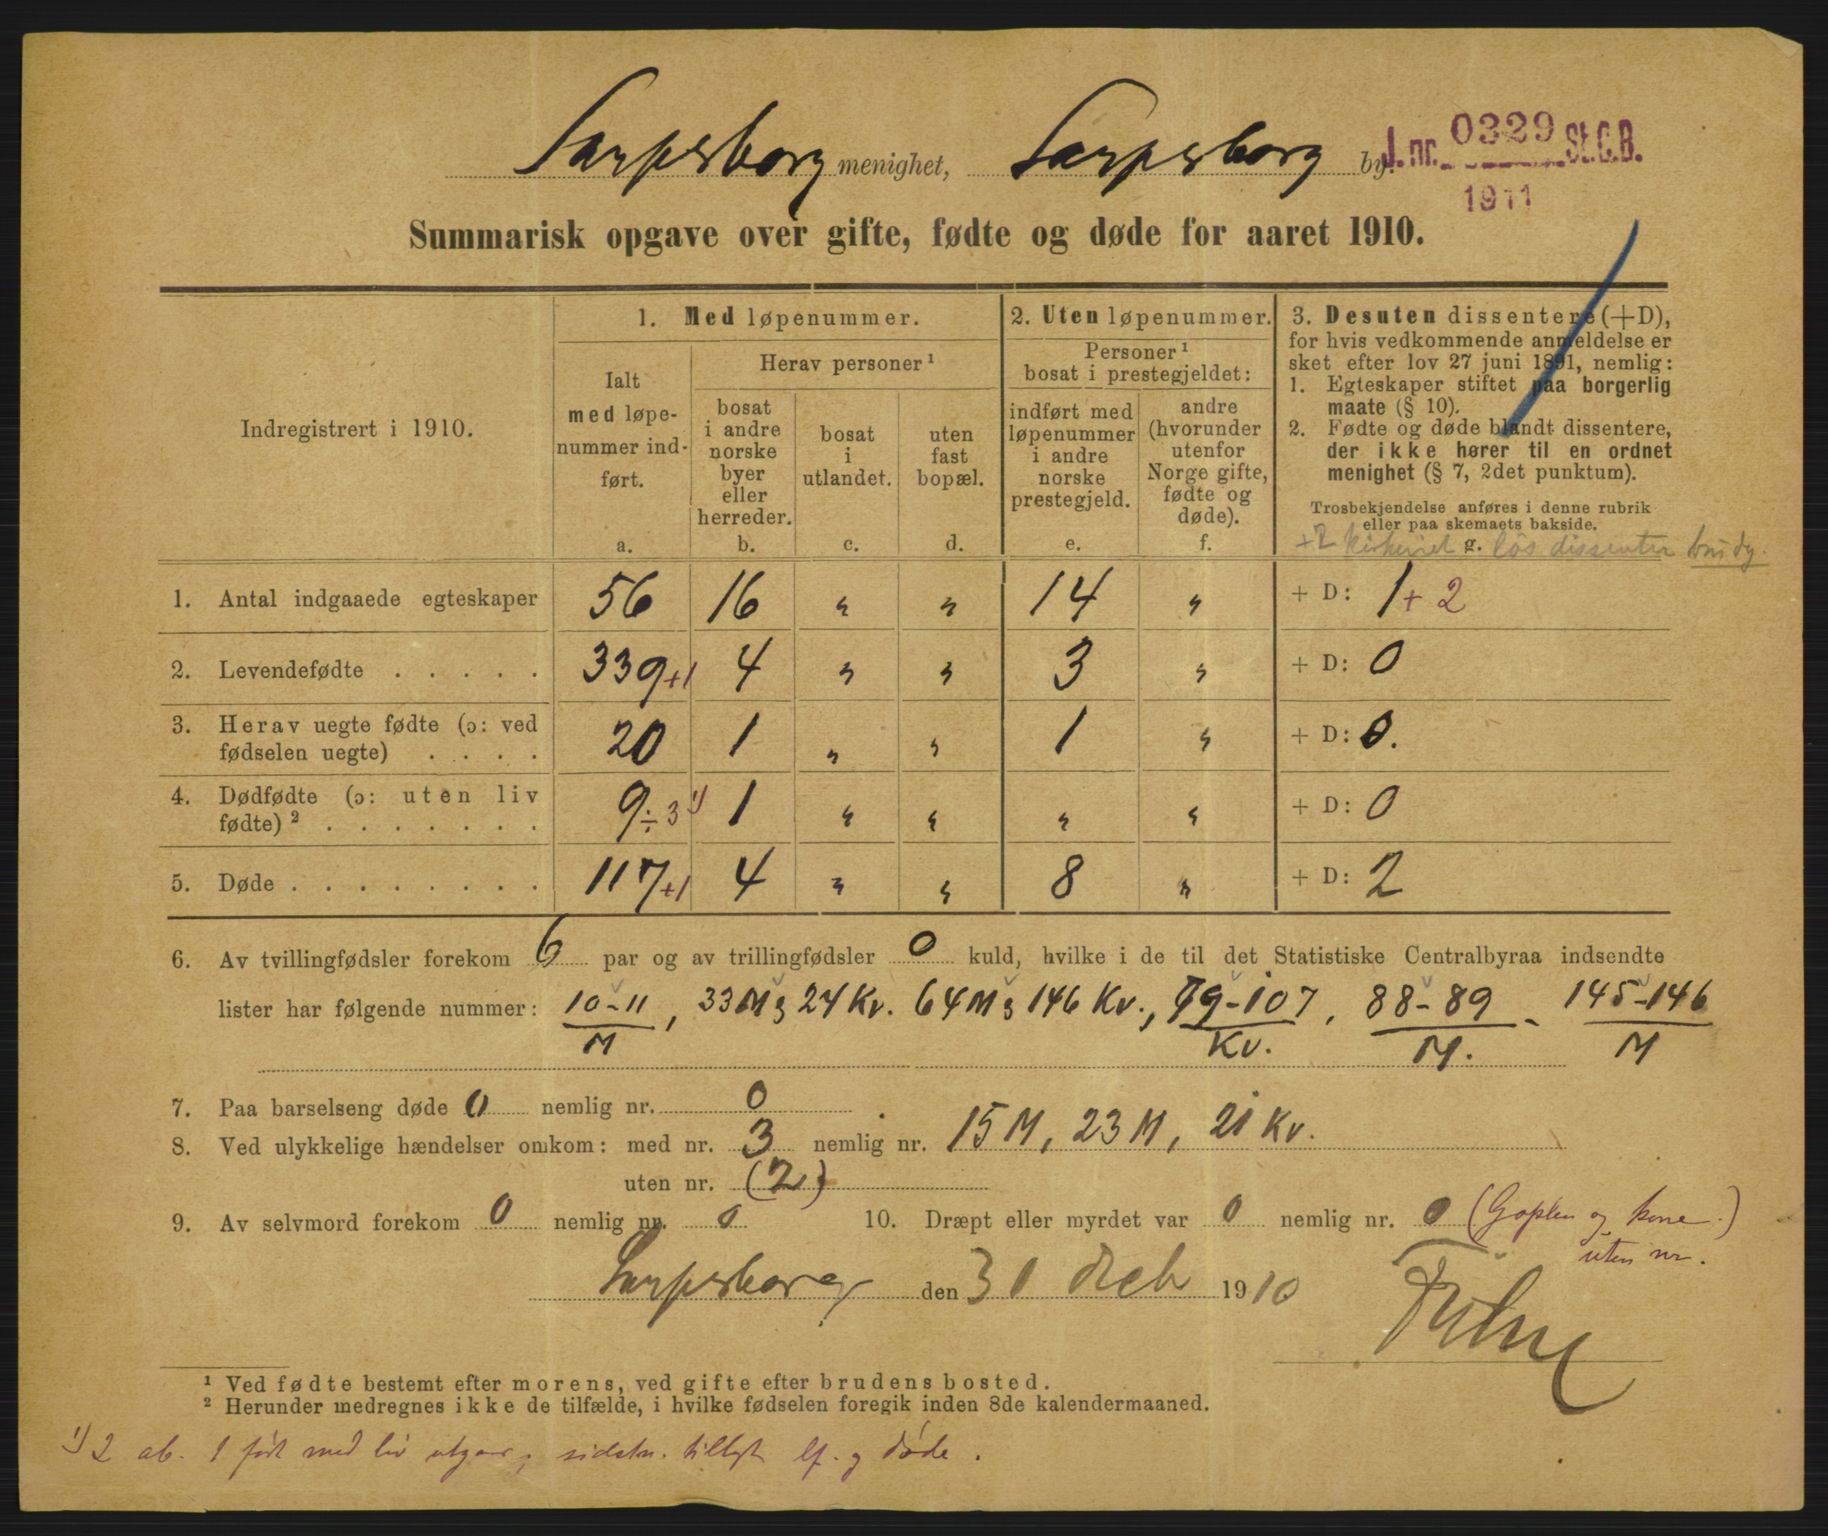 Sarpsborg menighet, Sarpsborg by.
J. nr. 0329 St.C.B.
1911
Summarisk opgave over gifte, fødte og døde for aaret 1910.
Indregistrert i 1910.
1. Med løpenummer.
Ialt
med løpe-
nummer ind-
ført.
a.
Herav personer ¹
bosat
i andre
norske
byer
eller
herreder.
b.
bosat
i
utlandet.
c.
uten
fast
bopæl.
d.
2. Uten løpenummer.
Personer ¹
bosat i prestegjeldet:
indført med
løpenummer
i andre
norske
prestegjeld.
e.
andre
(hvorunder
utenfor
Norge gifte,
fødte og
døde).
f.
3. Desuten dissentere (+D),
for hvis vedkommende anmeldelse er
sket efter lov 27 juni 1891, nemlig:
1. Egteskaper stiftet paa borgerlig
maate (§ 10).
2. Fødte og døde blandt dissentere,
der ikke hører til en ordnet
menighet (§ 7, 2det punktum).
Trosbekjendelse anføres i denne rubrik
eller paa skemaets bakside.
+2 g. løs dissenter
1. Antal indgaaede egteskaper 56 16 „ „ 14 „ + D: 1 + 2
2. Levendefødte . . . . . 339 +1 4 „ „ 3 „ + D: 0
3. Herav uegte fødte (ɔ: ved
fødselen uegte) . . . . 20 1 „ „ 1 „ + D: 0.
4. Dødfødte (ɔ: uten liv
fødte) ² . . . . . . . 9 ÷ 3 ¹) 1 „ „ „ „ + D: 0
5. Døde . . . . . . . . 117 +1 4 „ „ 8 „ + D: 2
6. Av tvillingfødsler forekom 6 par og av trillingfødsler 0 kuld, hvilke i de til det Statistiske Centralbyraa indsendte
lister har følgende nummer: 10-11, 33 M & 24 Kv. 64 M & 146 Kv., 79-107, 88-89 - 145-146
M Kv. M. M
7. Paa barselseng døde 0 nemlig nr. 0.
8. Ved ulykkelige hændelser omkom: med nr. 3 nemlig nr. 15 M, 23 M, 21 Kv.
uten nr. (2)
9. Av selvmord forekom 0 nemlig nr. 0 10. Dræpt eller myrdet var 0 nemlig nr. 0 (Goplen og kone.)
uten nr.
Sarpsborg den 31 Dcb 1910
¹ Ved fødte bestemt efter morens, ved gifte efter brudens bosted.
² Herunder medregnes ikke de tilfælde, i hvilke fødselen foregik inden 8de kalendermaaned.
¹) 2 ab. 1 født med liv utgaar, sidstn. tillagt lf. og døde.